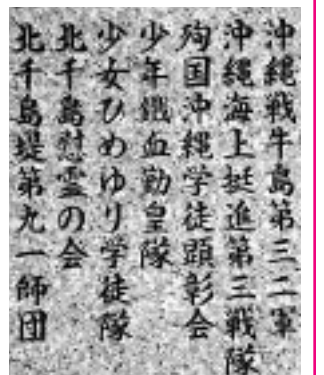 沖縄戦牛島第三二軍
沖縄海上挺進第三戦隊
殉国沖縄学徒顕彰会
少年鐵血勤皇隊
少女ひめゆり学徒隊
北千島慰霊の会
北千島堤第九一師団